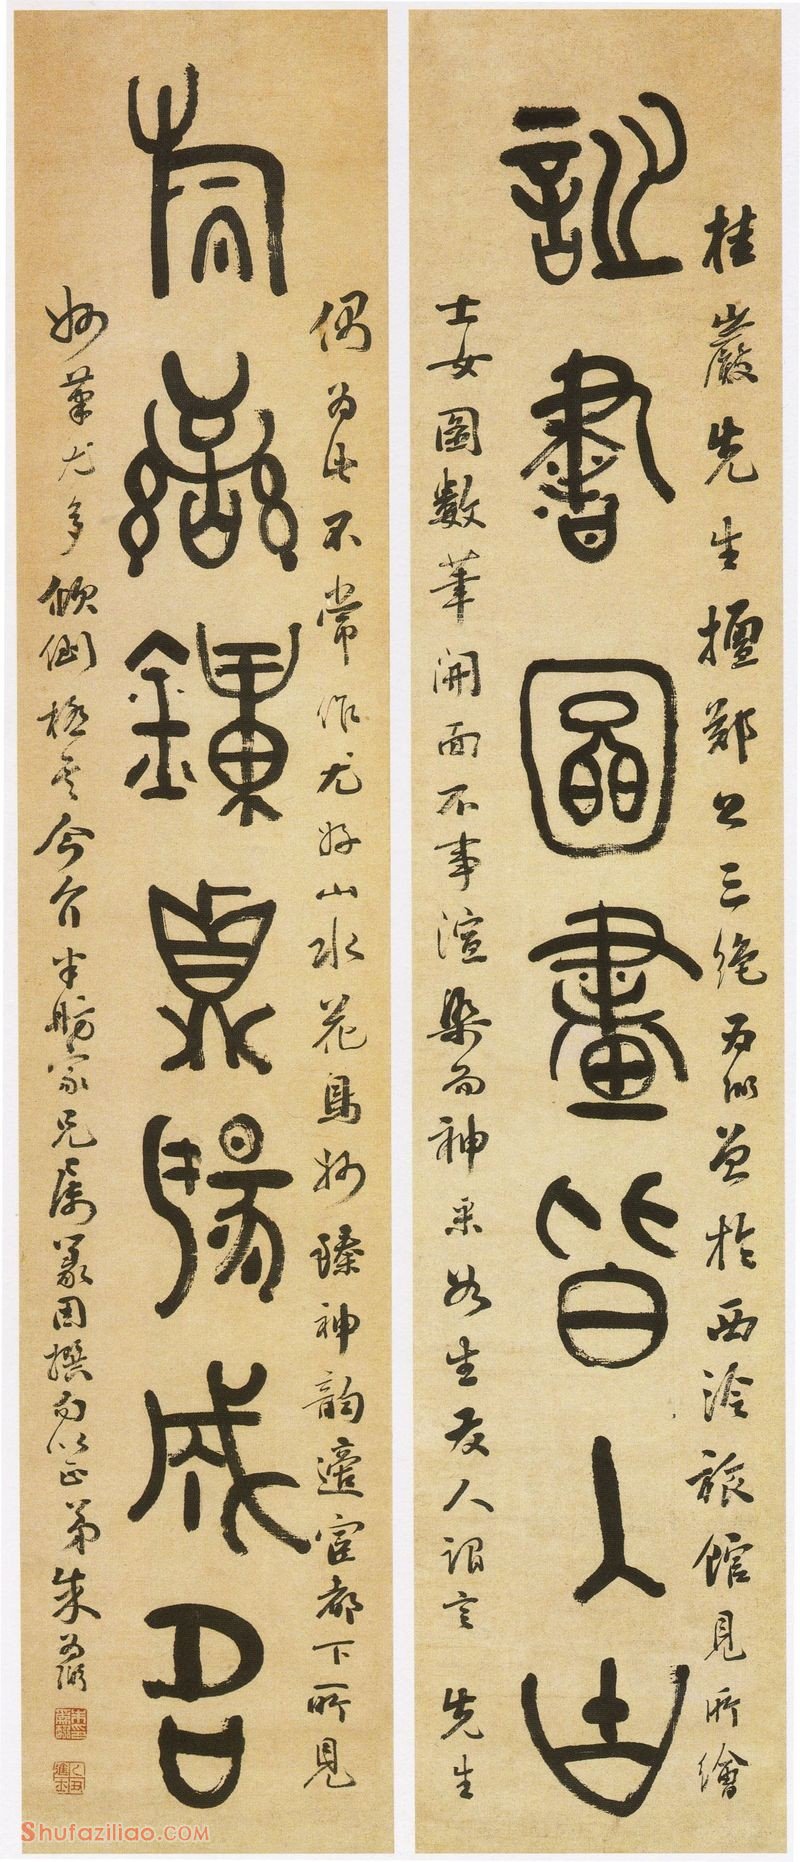 桂巖先生擅鄭公三絕為弼曾於西泠旅館見所繪
詩書圖畫皆入古
士女圖數筆開面不事渲染而神采如生友人謂言先生
偶為此不常作尤好山水花鳥妙臻神韻適宦都下所見
鼎
妙筆尤多傾倒極矣今介半舫家兄屬篆因撰句以正弟朱為弼
Shufaziliao.COM